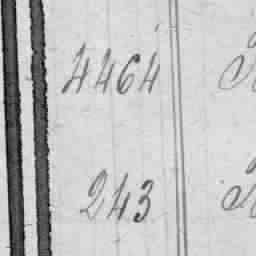 4464
243